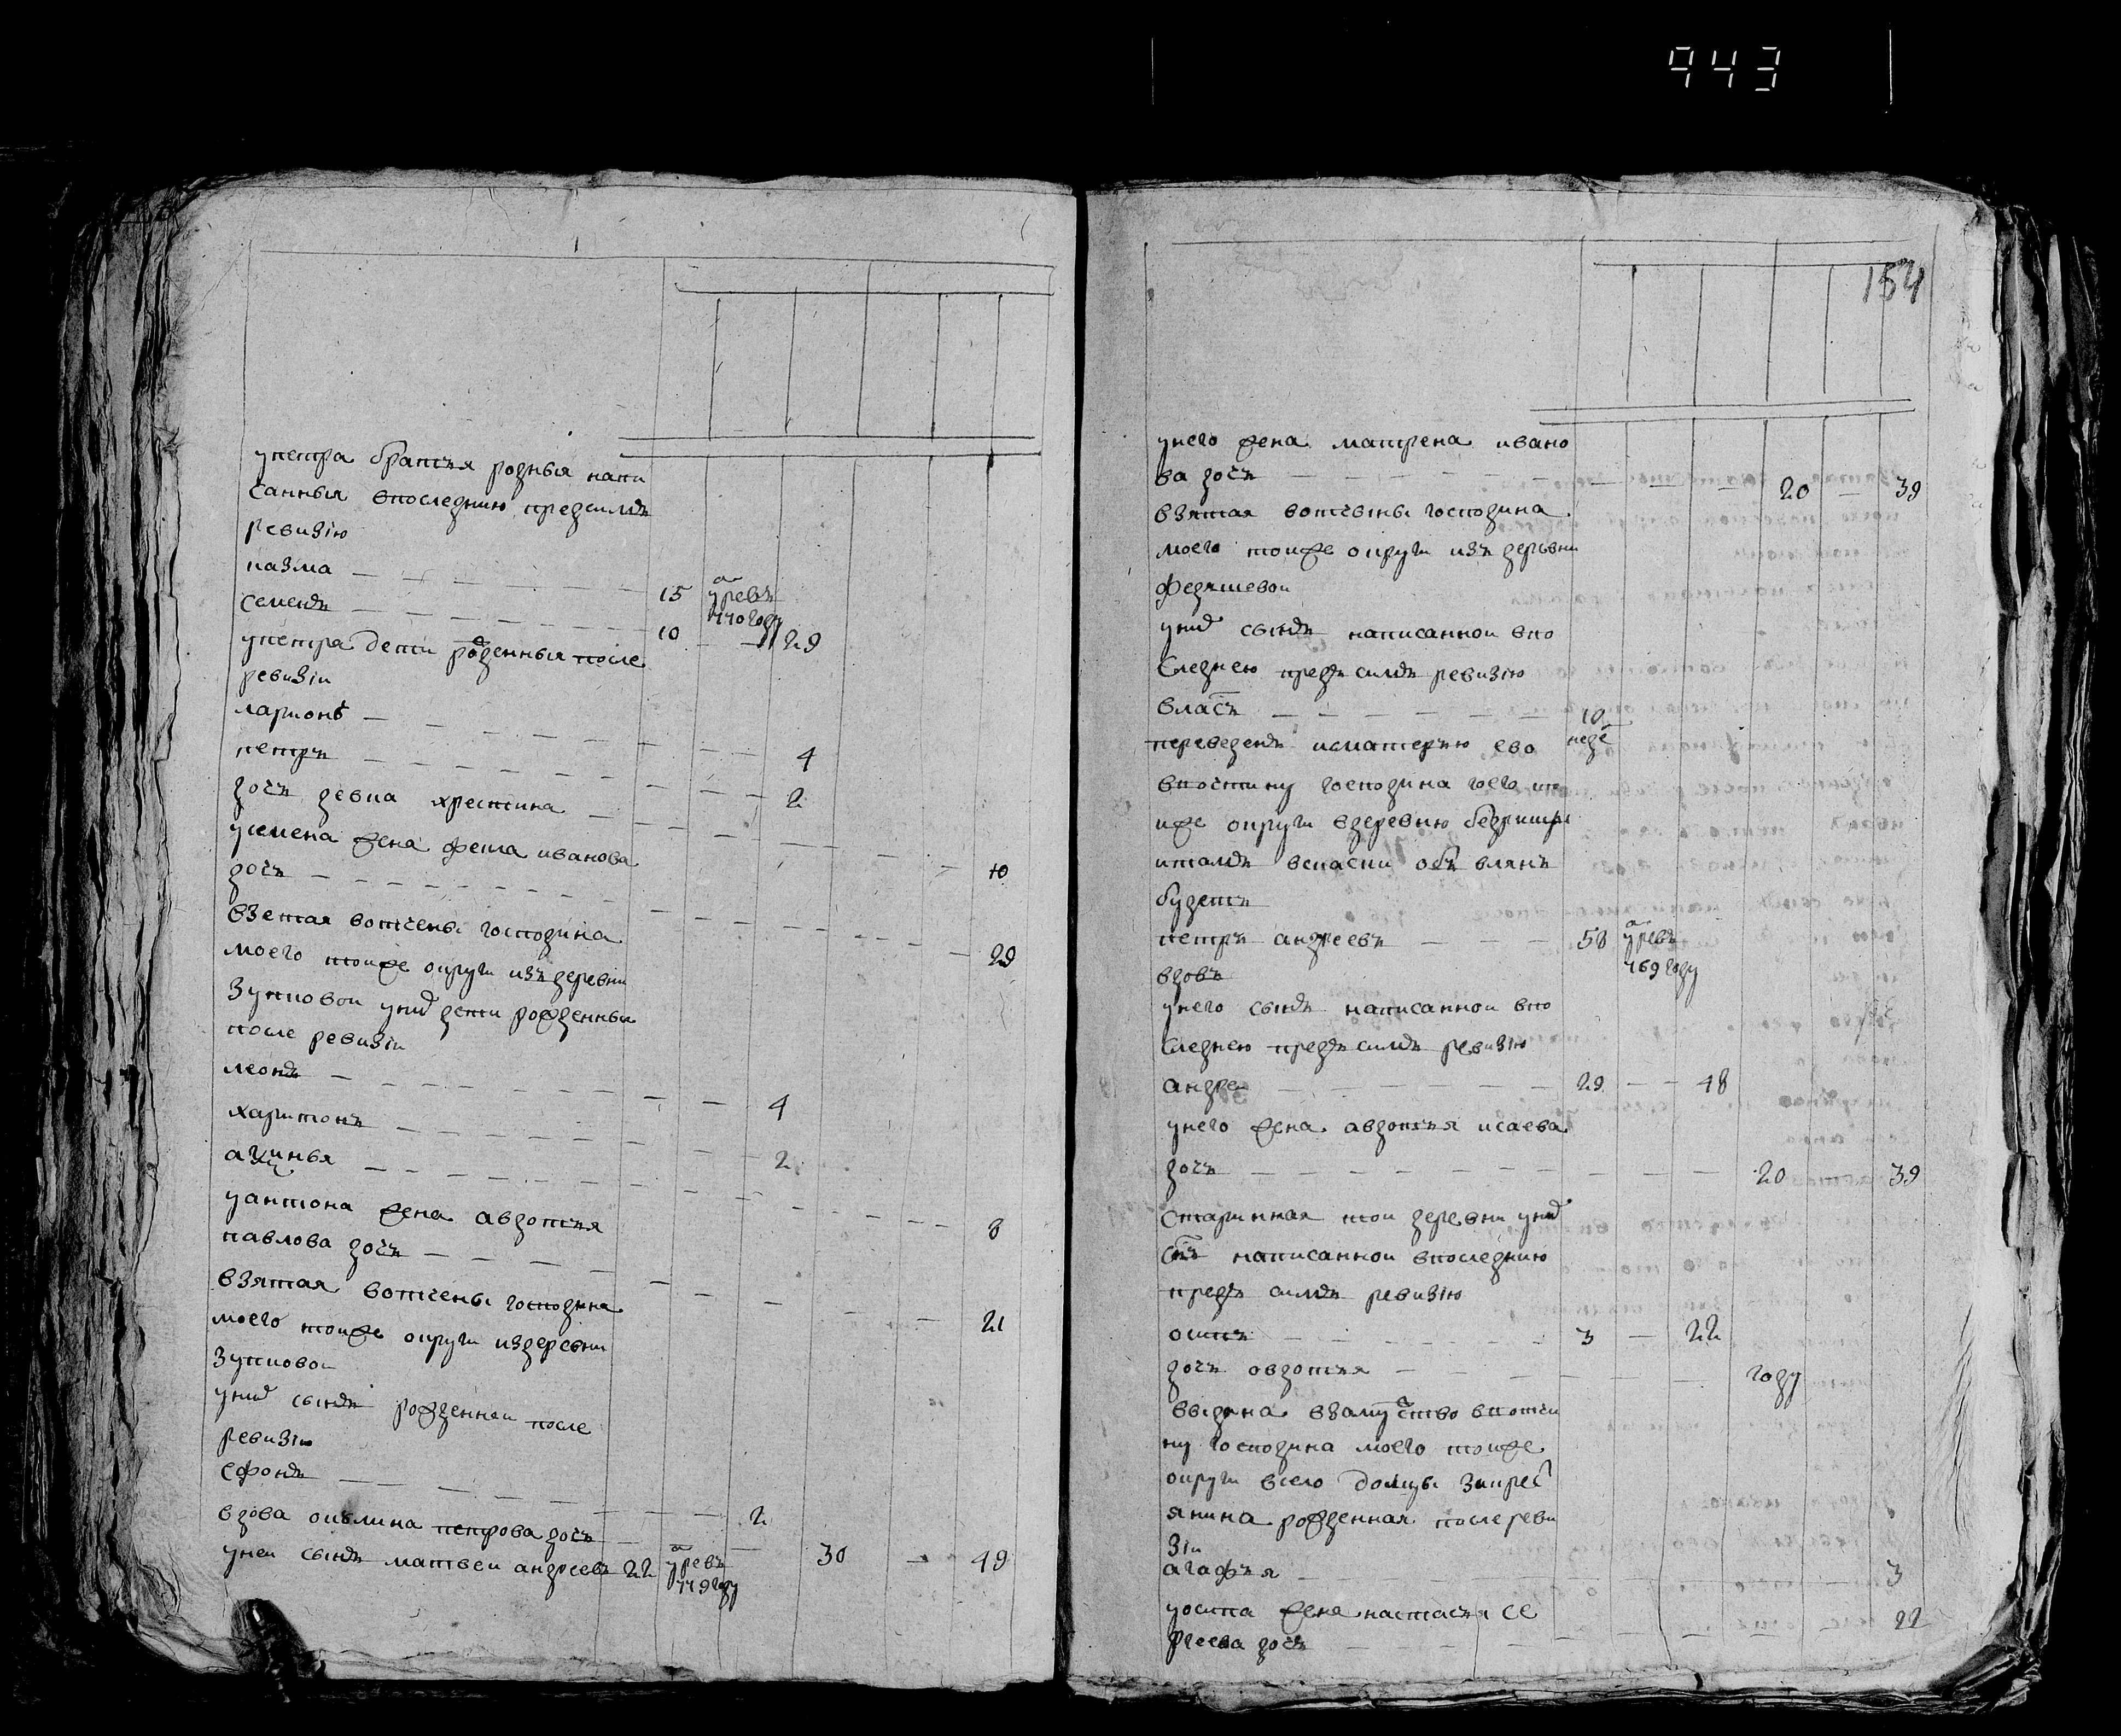 943
154
упетра братъя родныя напи
санныя впоследнию предсимъ
ревизию
казма 15 умре въ 770 году
семенъ 10 29
упетра дети рожденныя после
ревизiи
ларионъ 4
петръ 2
дочь девка христина 10
усемена жена фекла иванова
дочь 29
взетая вотчены господина
моего тойже округи изъ деревни
Зутиовой унихъ дети рожденныя
после ревизiи
леонъ 4
харитонъ 2
аксинья 8
уантона жена авдотья
павлова дочь 21
взятая вотчены господина
моего тойже округи издеревни
Зутиовой
унихъ сынъ рожденной после
ревизiи
ефонъ 2
вдова окулина петрова дочь 30 49
уней сынъ матвей андреевъ 22 умре въ 779 году
унего жена матрена ивано
ва дочь 20 39
взятая вотчины господина
моего тойже округи изъ деревни
федяшевой
унихъ сынъ написанной впо
следнею предъ симъ ревизiю
власъ 10
переведенъ исматерью ево
вотчину господина моего то
йже округи вдеревню
итамъ вскаски объ влянъ
будетъ
петръ андреевъ 58 умре въ 769 году
вдовъ
унего сынъ написанной впо
следнею предъ симъ ревизiю
андре 29 48
унего жена авдотья исаева
дочь 20 39
старинная той деревни унихъ
снъ написанной впоследнию
предъ симъ ревизiю
осипъ 3 22
дочь овдотья году
выдана взамуство вотчи
ну господина моего тойже
округи всело закрес
янина рожденная послереви
зiи
агафья 3
уосипа жена настасья се
ргеева дочь 22